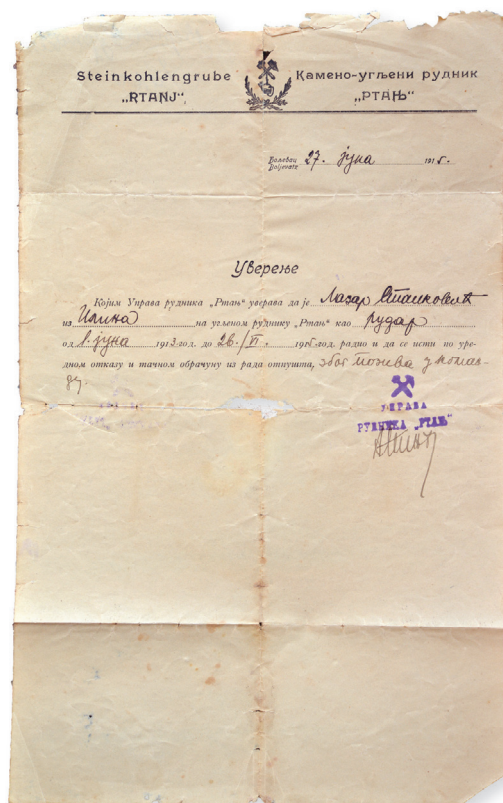 Steinkohlengrube
„RTANJ“
Камено-угљени рудник
„РТАЊ“
Бољевац
Boljevatz
27. јуна 1915.
Уверење
Којим Управа рудника „Ртањ“ уверава да је Лазар Станковић
из Илина на угљеном руднику „Ртањ“ као рудар
од 1. јуна 1913.год. до 26./VI. 1915.год. радио и да се исти по уре-
дном отказу и тачном обрачуну из рада отпушта, због позива у коман-
ду.
УПРАВА
РУДНИКА „РТАЊ“